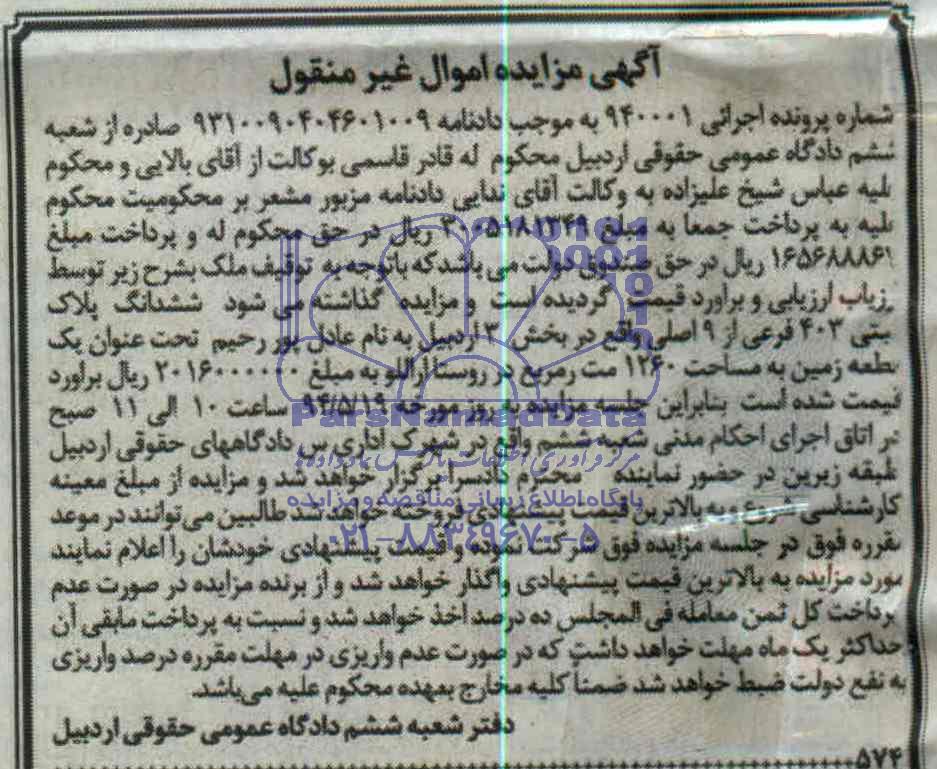 آگهی مزایده اموال غیر منقول
شماره پرونده اجرائی ۹۴۰۰۰۱ به موجب دادنامه ۹۳۱۰۰۹۰۴۰۴۶۰۱۰۰۹ صادره از شعبه
ششم دادگاه عمومی حقوقی اردبیل محکوم له قادر قاسمی بوکالت از آقای بالایی و محکوم
علیه عباس شیخ علیزاده به وکالت آقای ندایی دادنامه مزبور مشعر بر محکومیت محکوم
علیه به پرداخت جمعا به مبلغ ریال در حق محکوم له و پرداخت مبلغ
ریال در حق صندوق دولت می باشد که باتوجه به توقیف ملک بشرح زیر توسط
ارزیاب ارزیابی و براورد قیمت گردیده است و مزایده گذاشته می شود ششدانگ پلاک
ثبتی ۴۰۳ فرعی از ۹ اصلی واقع در بخش ۳ اردبیل به نام عادل پور رحیم تحت عنوان یک
قطعه زمین به مساحت ۱۲۶۰ مت رمربع در روستا آراللو به مبلغ ۲۰۱۶۰۰۰۰۰۰ ریال براورد
قیمت شده است بنابراین جلسه مزایده به روز مورخه ۹۴/۵/۱۹ ساعت ۱۰ الی ۱۱ صبح
در اتاق اجرای احکام مدنی شعبه ششم واقع در شهرک اداری دادگاههای حقوقی اردبیل
طبقه زیرین در حضور نماینده محترم دادسرا برگزار خواهد شد و مزایده از مبلغ معینه
کارشناسی شروع و به بالاترین قیمت پیشنهادی فروخته خواهد شد طالبین می توانند در موعد
مقرره فوق در جلسه مزایده فوق شرکت نموده و قیمت پیشنهادی خودشان را اعلام نمایند
مورد مزایده به بالاترین قیمت پیشنهادی واگذار خواهد شد و از برنده مزایده در صورت عدم
پرداخت کل ثمن معامله فی المجلس ده درصد اخذ خواهد شد و نسبت به پرداخت مابقی آن
حداکثر یک ماه مهلت خواهد داشت که در صورت عدم واریزی در مهلت مقرره درصد واریزی
به نفع دولت ضبط خواهد شد ضمناً کلیه مخارج بعهده محکوم علیه می‌باشد.
دفتر شعبه ششم دادگاه عمومی حقوقی اردبیل
۵۷۴
ParsNamadData
مرکز فرآوری اطلاعات پارس نماد داده‌ها
پایگاه اطلاع رسانی مناقصه و مزایده
۰۲۱-۸۸۳۴۹۶۷۰-۵